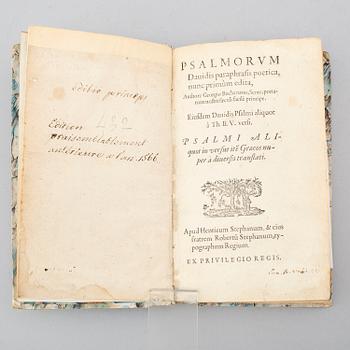 editio princeps
452
Edition
vraisemblablement
antérieure a l'an 1566.
PSALMORVM
Dauidis paraphrasis poetica,
nunc primùm edita,
Authore Georgio Buchanano, Scoto, poetarum
nostri sæculi facilè principe.
Eiusdem Dauidis Psalmi aliquot
à Th. B. V. versi.
PSALMI ALIquot
in versus itē Græcos nuper
à diuersis translati.
Apud Henricum Stephanum, & eius
fratrem Robertū Stephanum, typographum
Regium.
EX PRIVILEGIO REGIS.